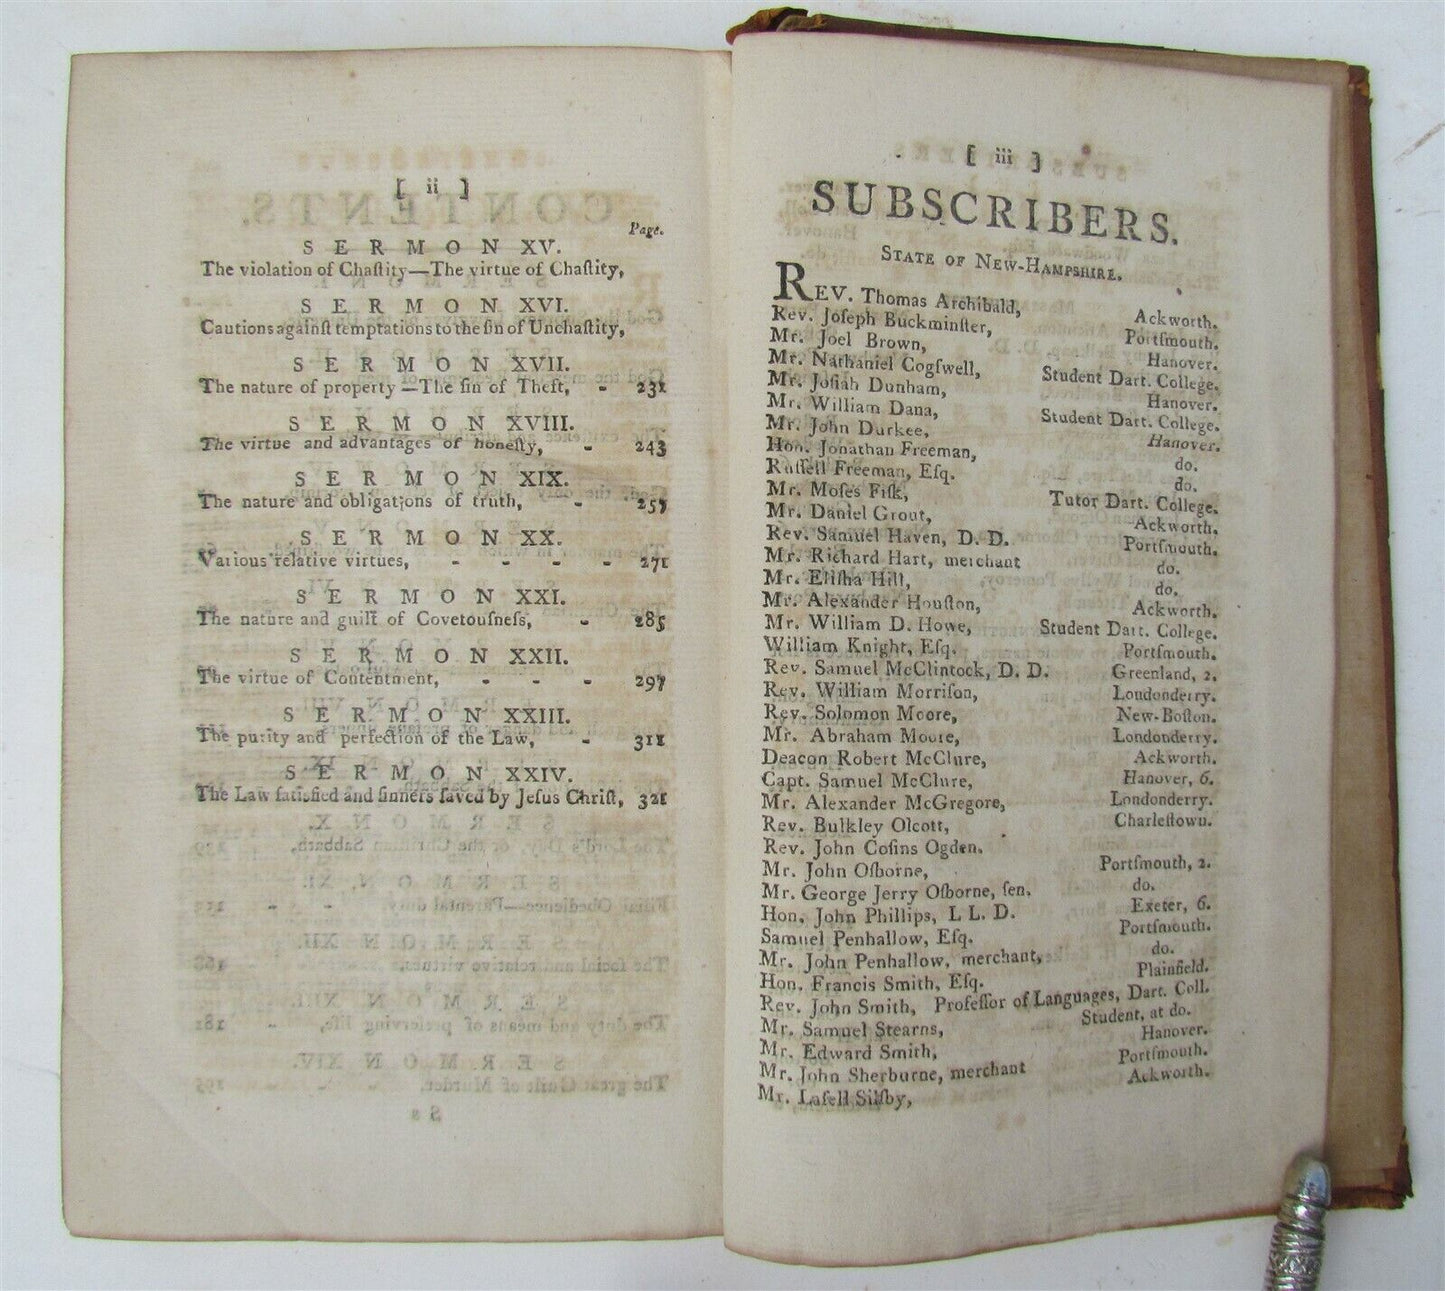 [ ii ]
Page.
SERMON XV.
The violation of Chaſtity—The virtue of Chaſtity,
SERMON XVI.
Cautions againſt temptations to the ſin of Unchaſtity,
SERMON XVII.
The nature of property—The ſin of Theft, - 231
SERMON XVIII.
The virtue and advantages of honeſty, - 243
SERMON XIX.
The nature and obligations of truth, - 257
SERMON XX.
Various relative virtues, - - - - 271
SERMON XXI.
The nature and guilt of Covetouſneſs, - 285
SERMON XXII.
The virtue of Contentment, - - - 297
SERMON XXIII.
The purity and perfection of the Law, - 311
SERMON XXIV.
The Law ſatisfied and ſinners ſaved by Jeſus Chriſt, 321
[ iii ]
SUBSCRIBERS.
STATE OF NEW-HAMPSHIRE.
REV. Thomas Archibald, Ackworth.
Rev. Joſeph Buckminſter, Portſmouth.
Mr. Joel Brown, Hanover.
Mr. Nathaniel Cogſwell, Student Dart. College.
Mr. Joſiah Dunham, Hanover.
Mr. William Dana, Student Dart. College.
Mr. John Durkee, Hanover.
Hon. Jonathan Freeman, do.
Ruſſell Freeman, Eſq. do.
Mr. Moſes Fiſk, Tutor Dart. College.
Mr. Daniel Grout, Ackworth.
Rev. Samuel Haven, D. D. Portſmouth.
Mr. Richard Hart, merchant do.
Mr. Eliſha Hill, do.
Mr. Alexander Houſton, Ackworth.
Mr. William D. Howe, Student Dart. College.
William Knight, Eſq. Portſmouth.
Rev. Samuel McClintock, D. D. Greenland, 2.
Rev. William Morriſon, Londonderry.
Rev. Solomon Moore, New-Boſton.
Mr. Abraham Moore, Londonderry.
Deacon Robert McClure, Ackworth.
Capt. Samuel McClure, Hanover, 6.
Mr. Alexander McGregore, Londonderry.
Rev. Bulkley Olcott, Charleſtown.
Rev. John Coſins Ogden.
Mr. John Oſborne, Portſmouth, 2.
Mr. George Jerry Oſborne, ſen. do.
Hon. John Phillips, L L. D. Exeter, 6.
Samuel Penhallow, Eſq. Portſmouth.
Mr. John Penhallow, merchant, do.
Hon. Francis Smith, Eſq. Plainfield.
Rev. John Smith, Profeſſor of Languages, Dart. Coll.
Mr. Samuel Stearns, Student, at do.
Mr. Edward Smith, Hanover.
Mr. John Sherburne, merchant Portſmouth.
Mr. Laſell Silſby, Ackworth.